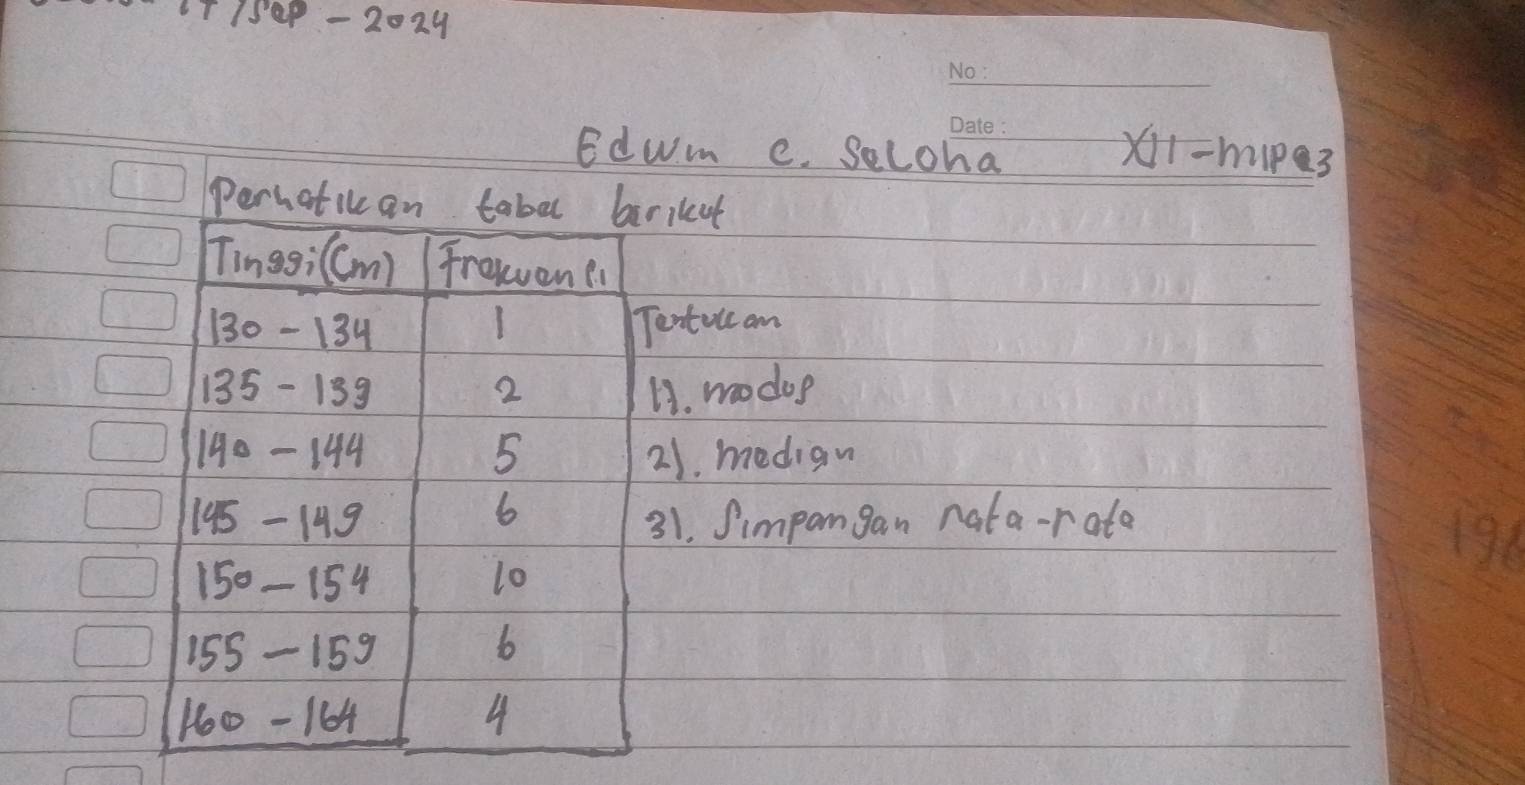 17/Sep - 2024
No:
Date:
Edwin C. Saloha XII-MIPA3
Perhatikan tabel berikut
Tinggi(Cm) Frekuensi
130 - 134 1 Tentukan
135 - 139 2 1). modus
140 - 144 5 2). median
145 - 149 6 3). Simpangan rata-rata
150 - 154 10
155 - 159 6
160 - 164 4